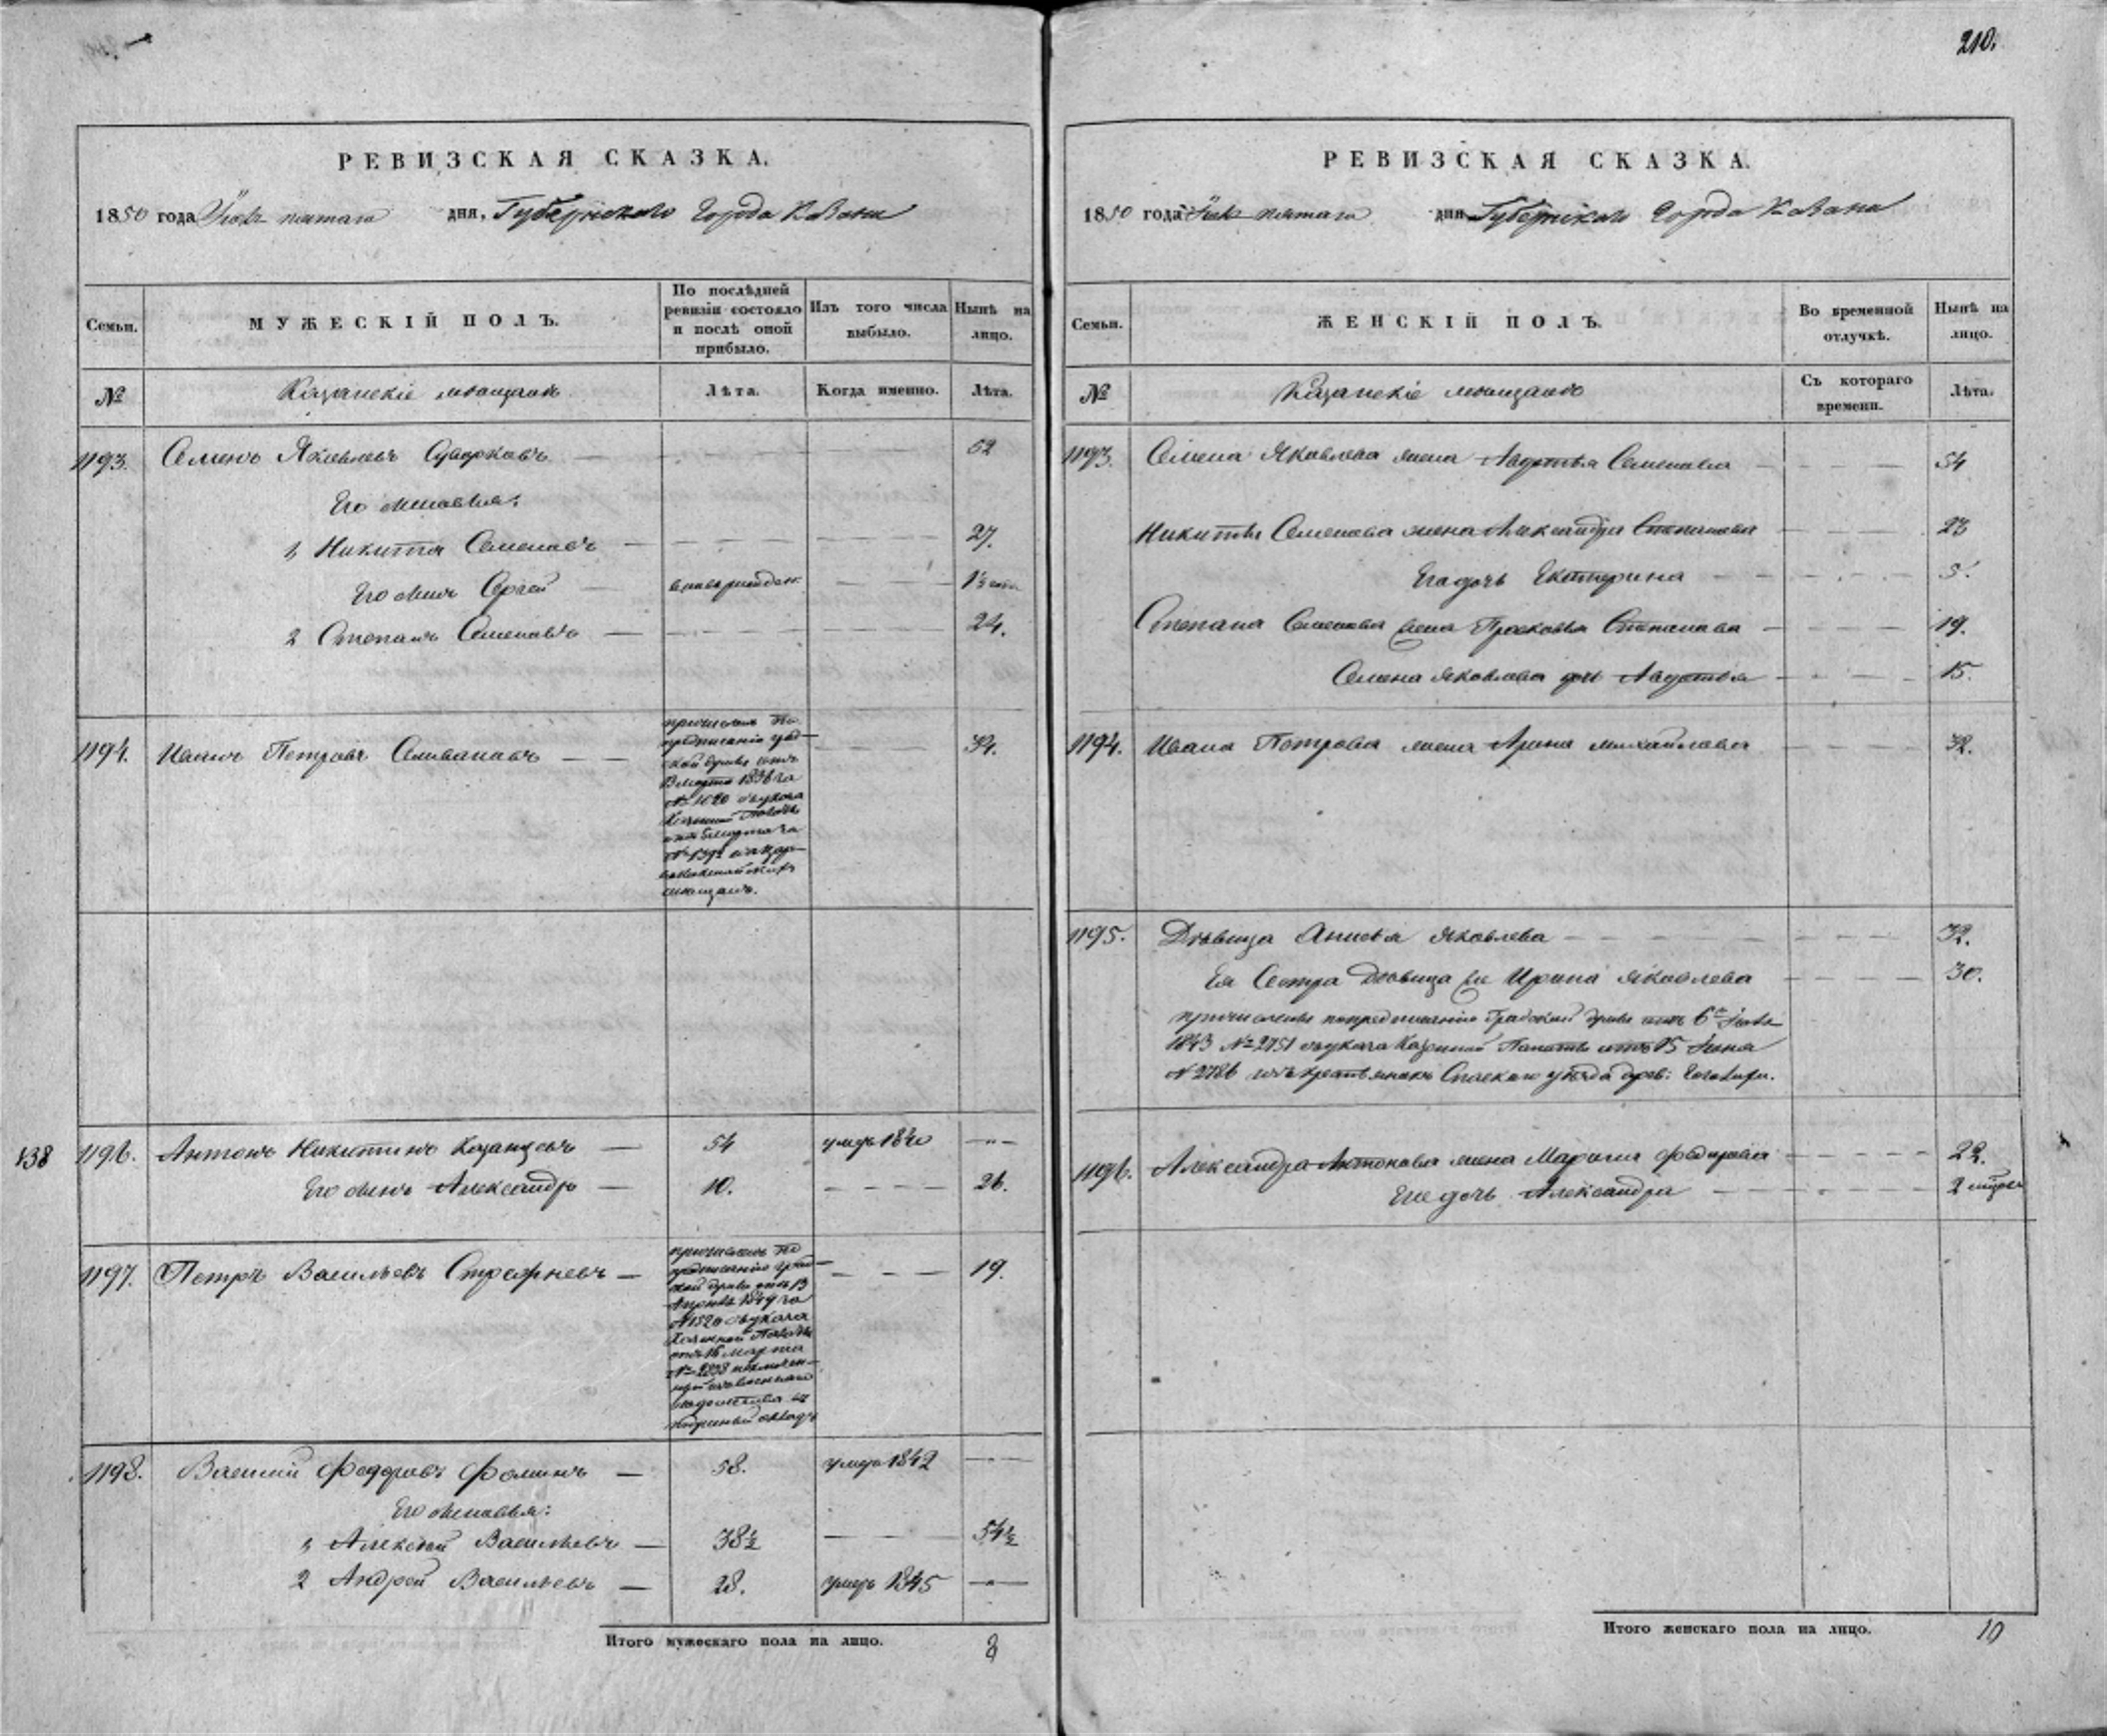 210.
РЕВИЗСКАЯ СКАЗКА.
1850 года Іюля пятаго дня, Губернскаго Города Казани
Семьи.
МУЖЕСКІЙ ПОЛЪ.
По послѣдней ревизіи состояло и послѣ оной прибыло.
Изъ того числа выбыло.
Нынѣ на лицо.
№
Казанскіе мѣщане
Лѣта.
Когда именно.
Лѣта.
1193. Семенъ Яковлевъ — — — 52
Его сыновья:
1, Никита Семеновъ — — — 27.
Его сынъ Сергей — вновь рожден. — 1½
2 Степанъ Семеновъ — — — 24.
1194. Иванъ Петровъ Селивановъ — — 34.
причисленъ по
предписанію град-
ской думы отъ
13 марта 1836 за
№ 1020 съ указа
Казенной Палаты
за
№
мѣщанъ.
138
1196. Антонъ Никитинъ Казанцевъ — 54 умеръ 1840 — —
Его сынъ Александръ — 10. — — — 26.
1197. Петръ Васильевъ Стрежневъ — — — 19.
причисленъ по
предписанію град-
ской думы отъ 13
Апрѣля 1849 за
№ 1520 съ указа
Казенной Палаты
отъ 16 марта
№ 2898
окладъ
1198. Василий Федоровъ Фоминъ — 58. умеръ 1842 — —
Его сыновья:
1, Алексей Васильевъ — 38½ — — — 54½
2 Андрей Васильевъ — 28. умеръ 1845 — —
Итого мужескаго пола на лицо. 8
РЕВИЗСКАЯ СКАЗКА.
1850 года Іюля пятаго дня Губернскаго Города Казани
Семьи.
ЖЕНСКІЙ ПОЛЪ.
Во временной отлучкѣ.
Нынѣ на лицо.
№
Казанскіе мѣщане
Съ котораго времени.
Лѣта.
1193. Семена Яковлева жена Авдотья Семенова — — — 54
Никиты Семенова жена Александра Степанова — — — 23
Его дочь Екатерина — — — 5.
Степана Семенова жена Прасковья Степанова — — — 19.
Семена Яковлева дочь Авдотья — — — 15.
1194. Ивана Петрова жена Арина Михайлова — — — 32.
1195. Дѣвица Анисья Яковлева — — — 32.
Ея Сестра Дѣвица же Ирина Яковлева — — — 30.
причислены по предписанію Градской думы отъ 6го Іюля
1843 № 2751 съ указа Казенной Палаты отъ 15 Іюня
№ 2786 изъ крестьянокъ Спаскаго уѣзда древ:
1196. Александра Антонова жена Марина Федорова — — — 22.
Его дочь Александра — — — 2 мѣсяц
Итого женскаго пола на лицо. 10